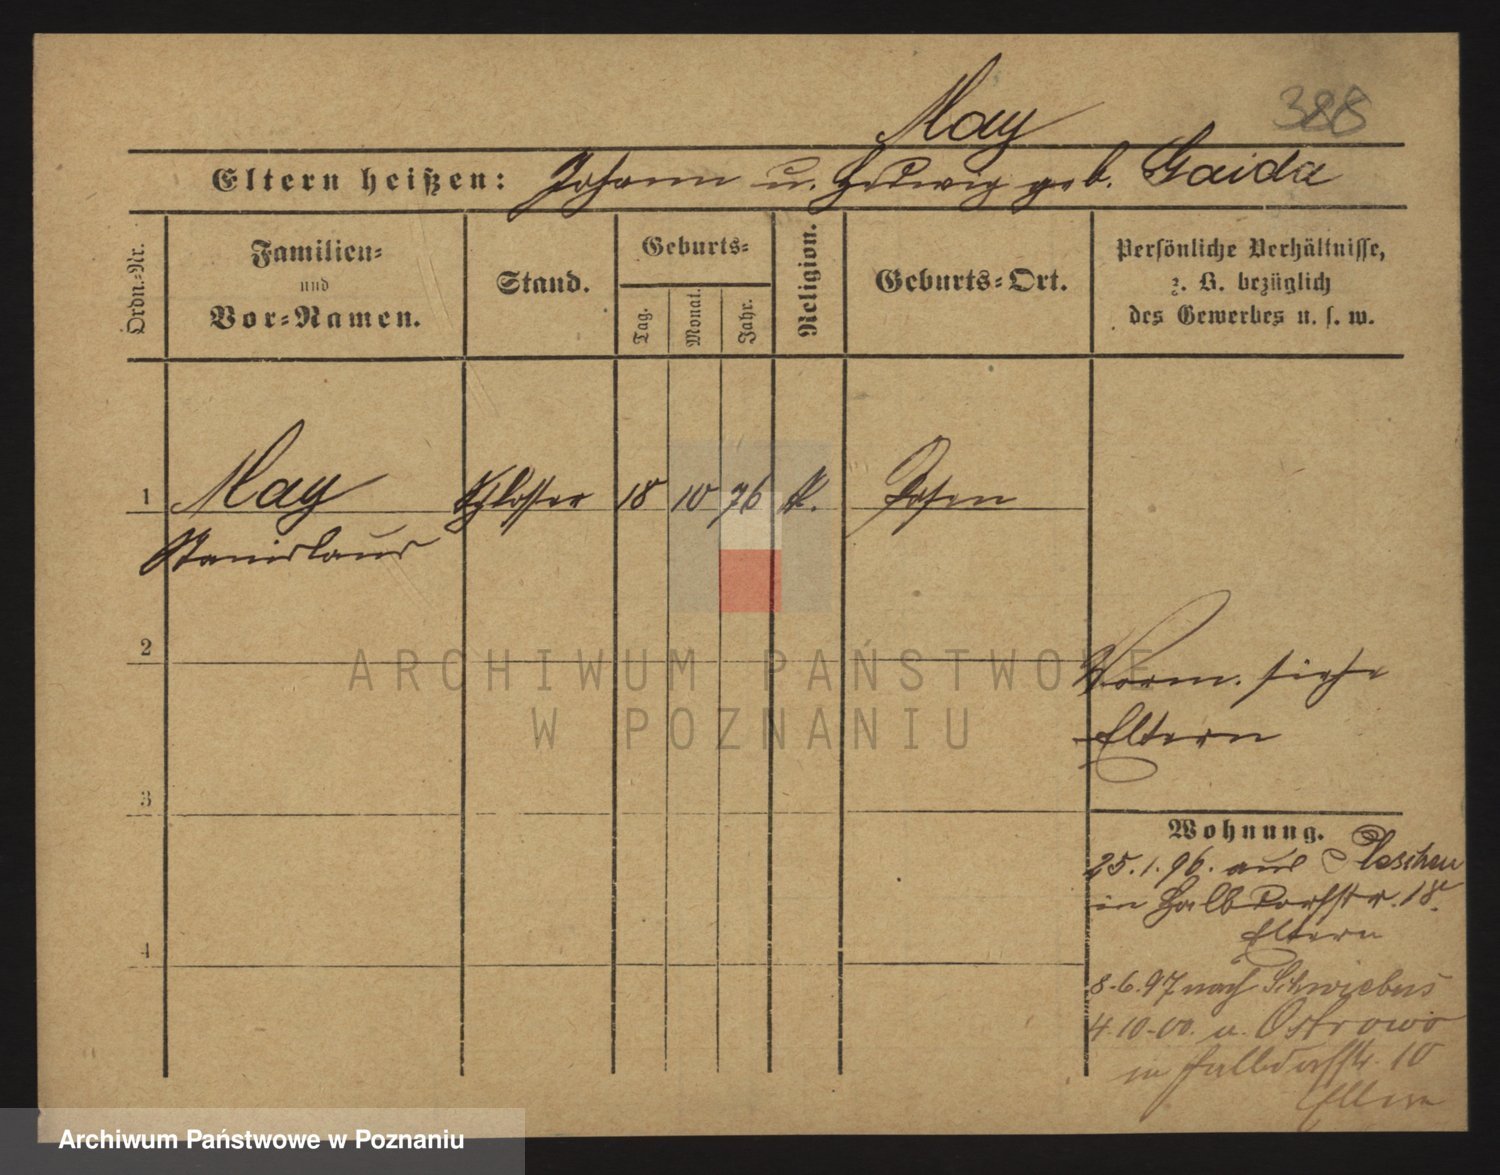 May
388
Eltern heißen: Johann u. Hedwig geb. Gaida
Ordn.=Nr.
Familien=
und
Vor=Namen.
Stand.
Geburts=
Tag.
Monat.
Jahr.
Religion.
Geburts=Ort.
Persönliche Verhältnisse,
z. B. bezüglich
des Gewerbes u. s. w.
1 May Schlosser 18 10 76 k. Posen
Stanislaus
2
ARCHIWUM PAŃSTWOWE
W POZNANIU
Vorm. siehe
Eltern
3
Wohnung.
25.1.96. aus Pleschen
in Halbdorfstr. 18.
Eltern
4
8.6.97 nach Schwiebus
4.10.00. a. Ostrowo
in Halbdorfstr. 10
Eltern
Archiwum Państwowe w Poznaniu